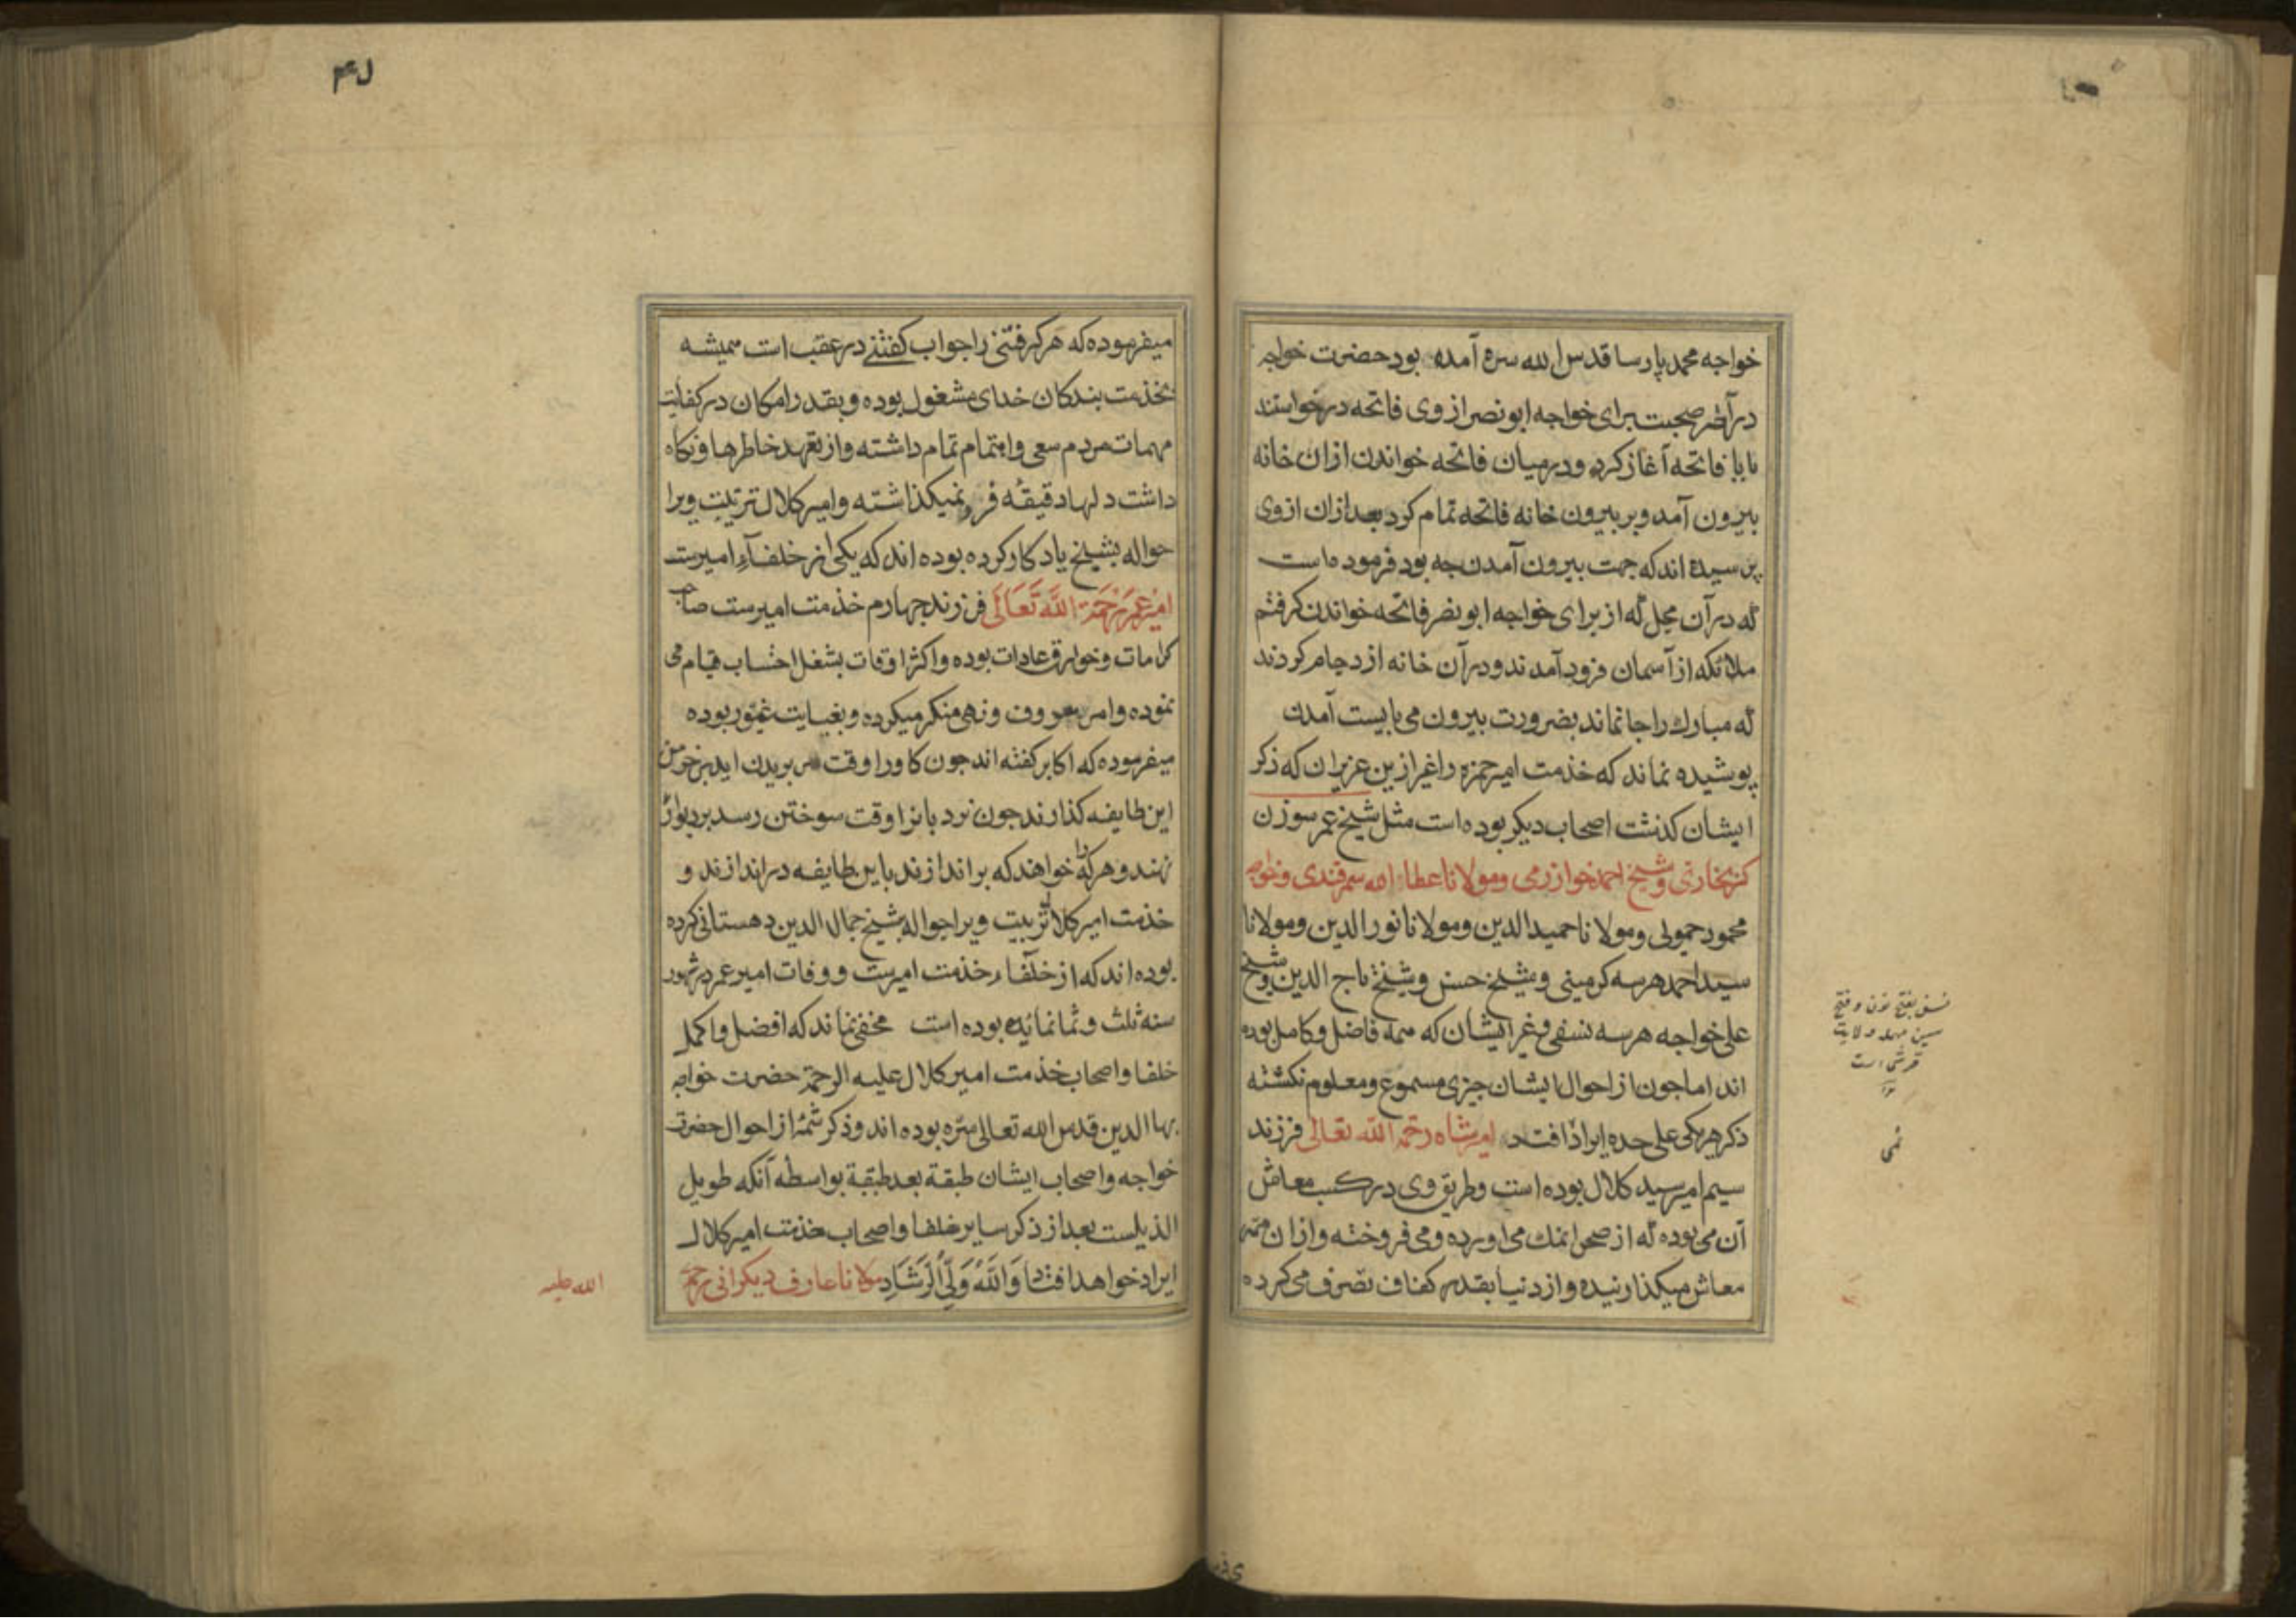 خواجه محمد پارسا قدس الله سره آمده بود حضرت خواجه
در آخر صحبت برای خواجه ابونصر از وی فاتحه درخواستند
بابا فاتحه آغاز کرد و در میان فاتحه خواندن ازان خانه
بیرون آمد و بر بیرون خانه فاتحه تمام کرد بعد ازان از وی
پرسیده اند که جهت بیرون آمدن چه بود فرموده است
که در آن محل که از برای خواجه ابونصر فاتحه خواندن کرفتم
ملائکه از آسمان فرود آمدند و در آن خانه ازدحام کردند
که مبارک را جا نماند بضرورت بیرون می بایست آمدن
پوشیده نماند که خذمت امیر حمزه را غیر ازین عزیزان که ذکر
ایشان کذشت اصحاب دیکر بوده است مثل شیخ عمر سوزن
کر بخارتی و شیخ احمد خوارزمی و مولانا عطاء الله سمرقندی و خواجه
محمود حمولی و مولانا حمیدالدین و مولانا نورالدین و مولانا
سید احمد هر سه کرمینی و شیخ حسن و شیخ تاج الدین و شیخ
علی خواجه هر سه نسفی و غیر ایشان که همه فاضل و کامل بوده
اند اما جون از احوال ایشان جیزی مسموع و معلوم نکشته
ذکر هر یکی علی حده ایراد افتاد امیر شاه رحمة الله تعالی فرزند
سیم امیر سید کلال بوده است و طریق وی در کسب معاش
آن می بوده که از صحرا نمک می اورده و می فروخته و ازان ممر
معاش میکذارنیده و از دنیا بقدر کفاف تصرف می کرده
نسف بفتح نون و فتح
سین مهمله ولایت
قرشی است
۴۷
میفرموده که هر کرفتنی را جواب کفتنی در عقب است همیشه
بخذمت بندکان خدای مشغول بوده و بقدر امکان در کفایت
مهمات مردم سعی و اهتمام تمام داشته و از تعهد خاطرها و نکاه
داشت دلها دقیقهٔ فرو نمیکذاشته و امیر کلال تربیت ویرا
حواله بشیخ یادکار کرده بوده اند که یکی از خلفآء امیرست
امیر عمر رَحْمَة اللَّه تَعَالَی فرزند جهارم خذمت امیرست صاحب
کرامات و خوارق عادات بوده و اکثر اوقات بشغل احتساب قیام می
نموده و امر معروف و نهی منکر میکرده و بغایت غیور بوده
میفرموده که اکابر کفته اند جون کاو را وقت سر بریدن اید بر خرمن
این طایفه کذارند جون نردبانرا وقت سوختن رسد بر دیوار
نهند و هر که را خواهند که براندازند باین طایفه دراندازند و
خذمت امیر کلال تربیت ویرا حواله بشیخ جمال الدین دهستانی کرده
بوده اند که از خلفاء خذمت امیرست و وفات امیر عمر در شهور
سنه ثلث و ثمانمائه بوده است مخفی نماند که افضل و اکمل
خلفا و اصحاب خذمت امیر کلال علیه الرحمة حضرت خواجه
بهاالدین قدس الله تعالی سره بوده اند و ذکر شمهٔ از احوال حضرت
خواجه و اصحاب ایشان طبقة بعد طبقة بواسطه آنکه طویل
الذیلست بعد از ذکر سایر خلفا و اصحاب خذمت امیر کلال
ایراد خواهد افتاد وَاللَّهُ وَلِیُّ الرَّشَادِ مولانا عارف دیکرانی رحمة
الله علیه